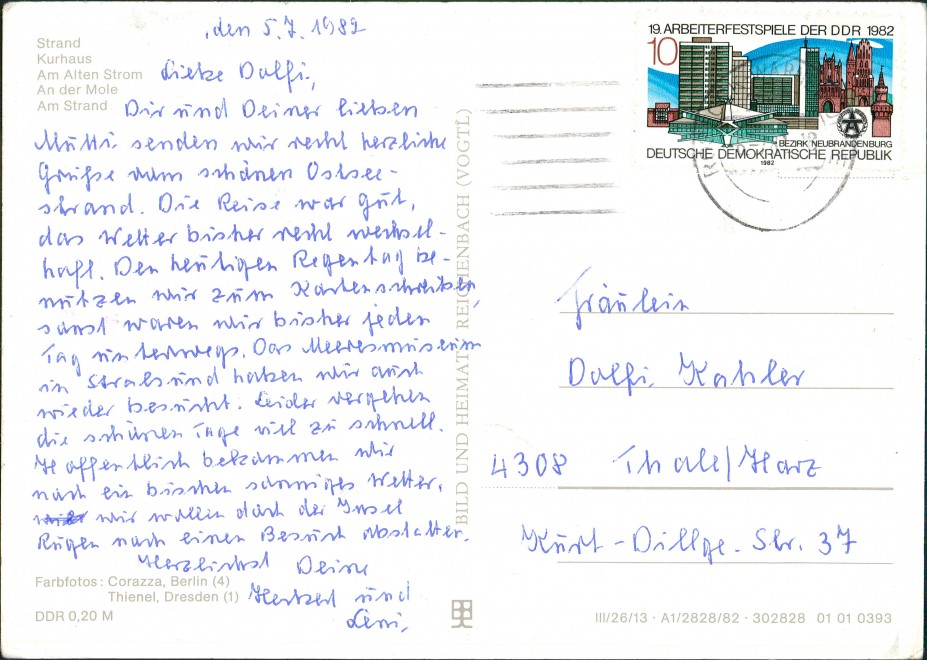 den 5.7.1982
Strand
Kurhaus
Am Alten Strom
An der Mole
Am Strand
Liebe Dolfi,
Dir und Deiner lieben
Mutti senden wir recht herzliche
Grüße vom schönen Ostsee-
strand. Die Reise war gut,
das Wetter bisher recht wechsel-
haft. Den heutigen Regentag be-
nutzen wir zum Kartenschreiben,
sonst waren wir bisher jeden
Tag unterwegs. Das Meeresmuseum
in Stralsund haben wir auch
wieder besucht. Leider vergehen
die schönen Tage viel zu schnell.
Hoffentlich bekommen wir
noch ein bischen sonniges Wetter,
wir wollen doch der Insel
Rügen noch einen Besuch abstatten.
Herzlichst Deine
und
Leni,
Farbfotos: Corazza, Berlin (4)
Thienel, Dresden (1)
DDR 0,20 M
BILD UND HEIMAT REICHENBACH (VOGTL)
19. ARBEITERFESTSPIELE DER DDR 1982
10
BEZIRK NEUBRANDENBURG
DEUTSCHE DEMOKRATISCHE REPUBLIK
1982
Fräulein
Dolfi Kahler
4308 Thale/Harz
Kurt-Dillge-Str. 37
III/26/13 · A1/2828/82 · 302828 01 01 0393